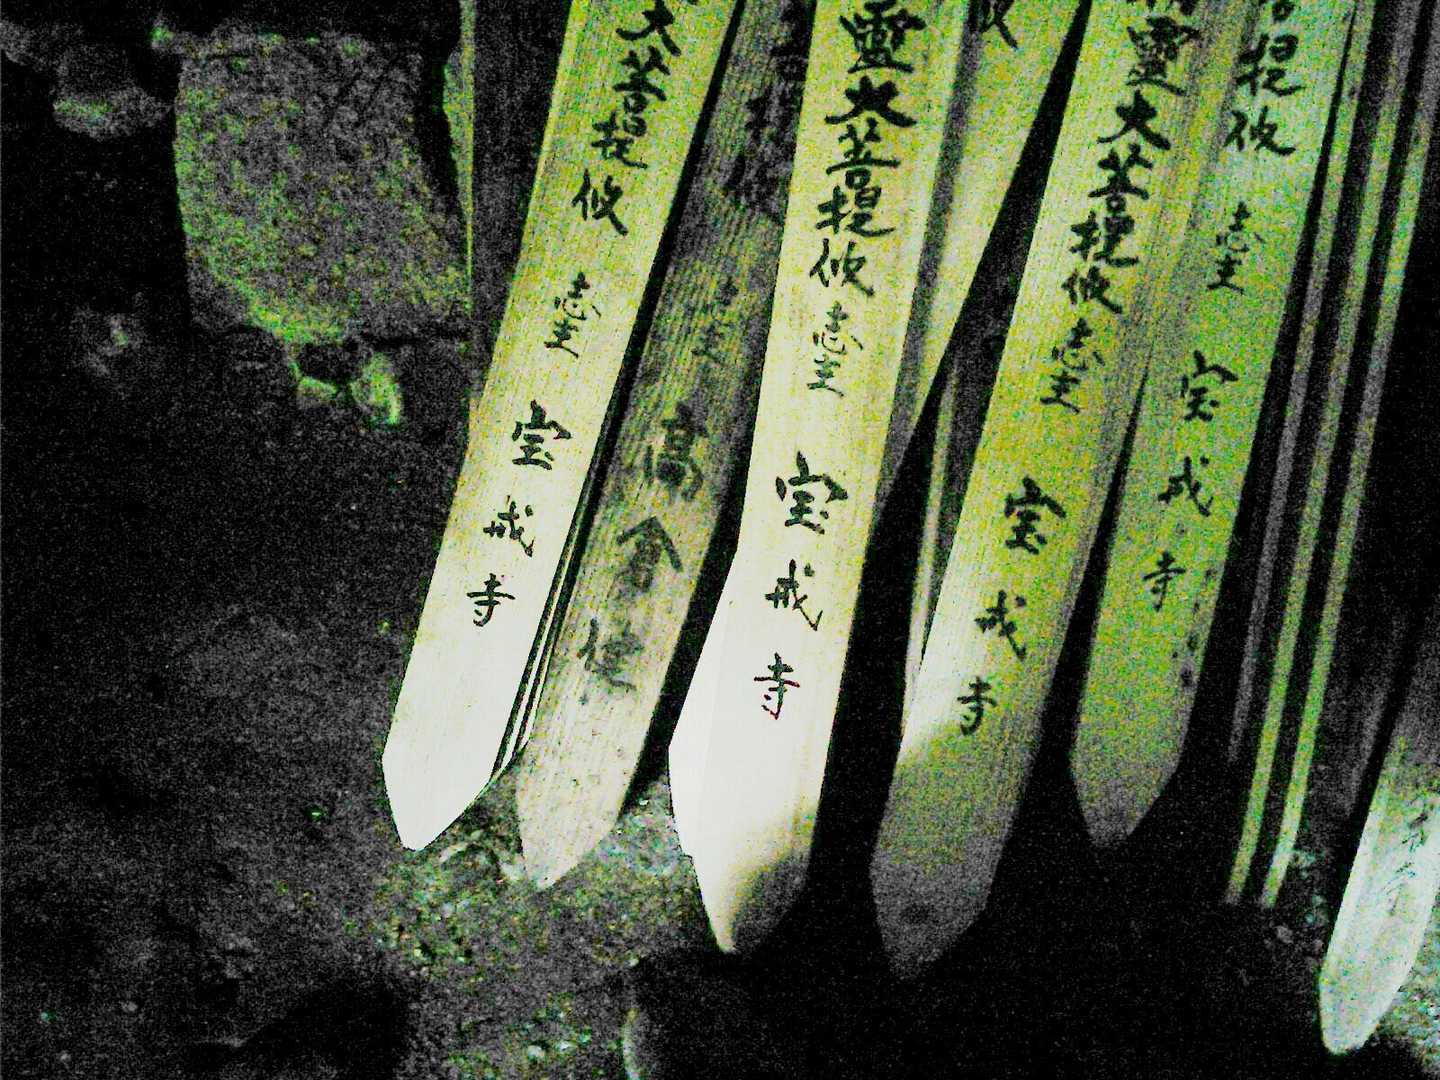 大菩提攸 志主 宝戒寺
高倉健
靈大菩提攸 志主 宝戒寺
靈大菩提攸 志主 宝戒寺
菩提攸 志主 宝戒寺